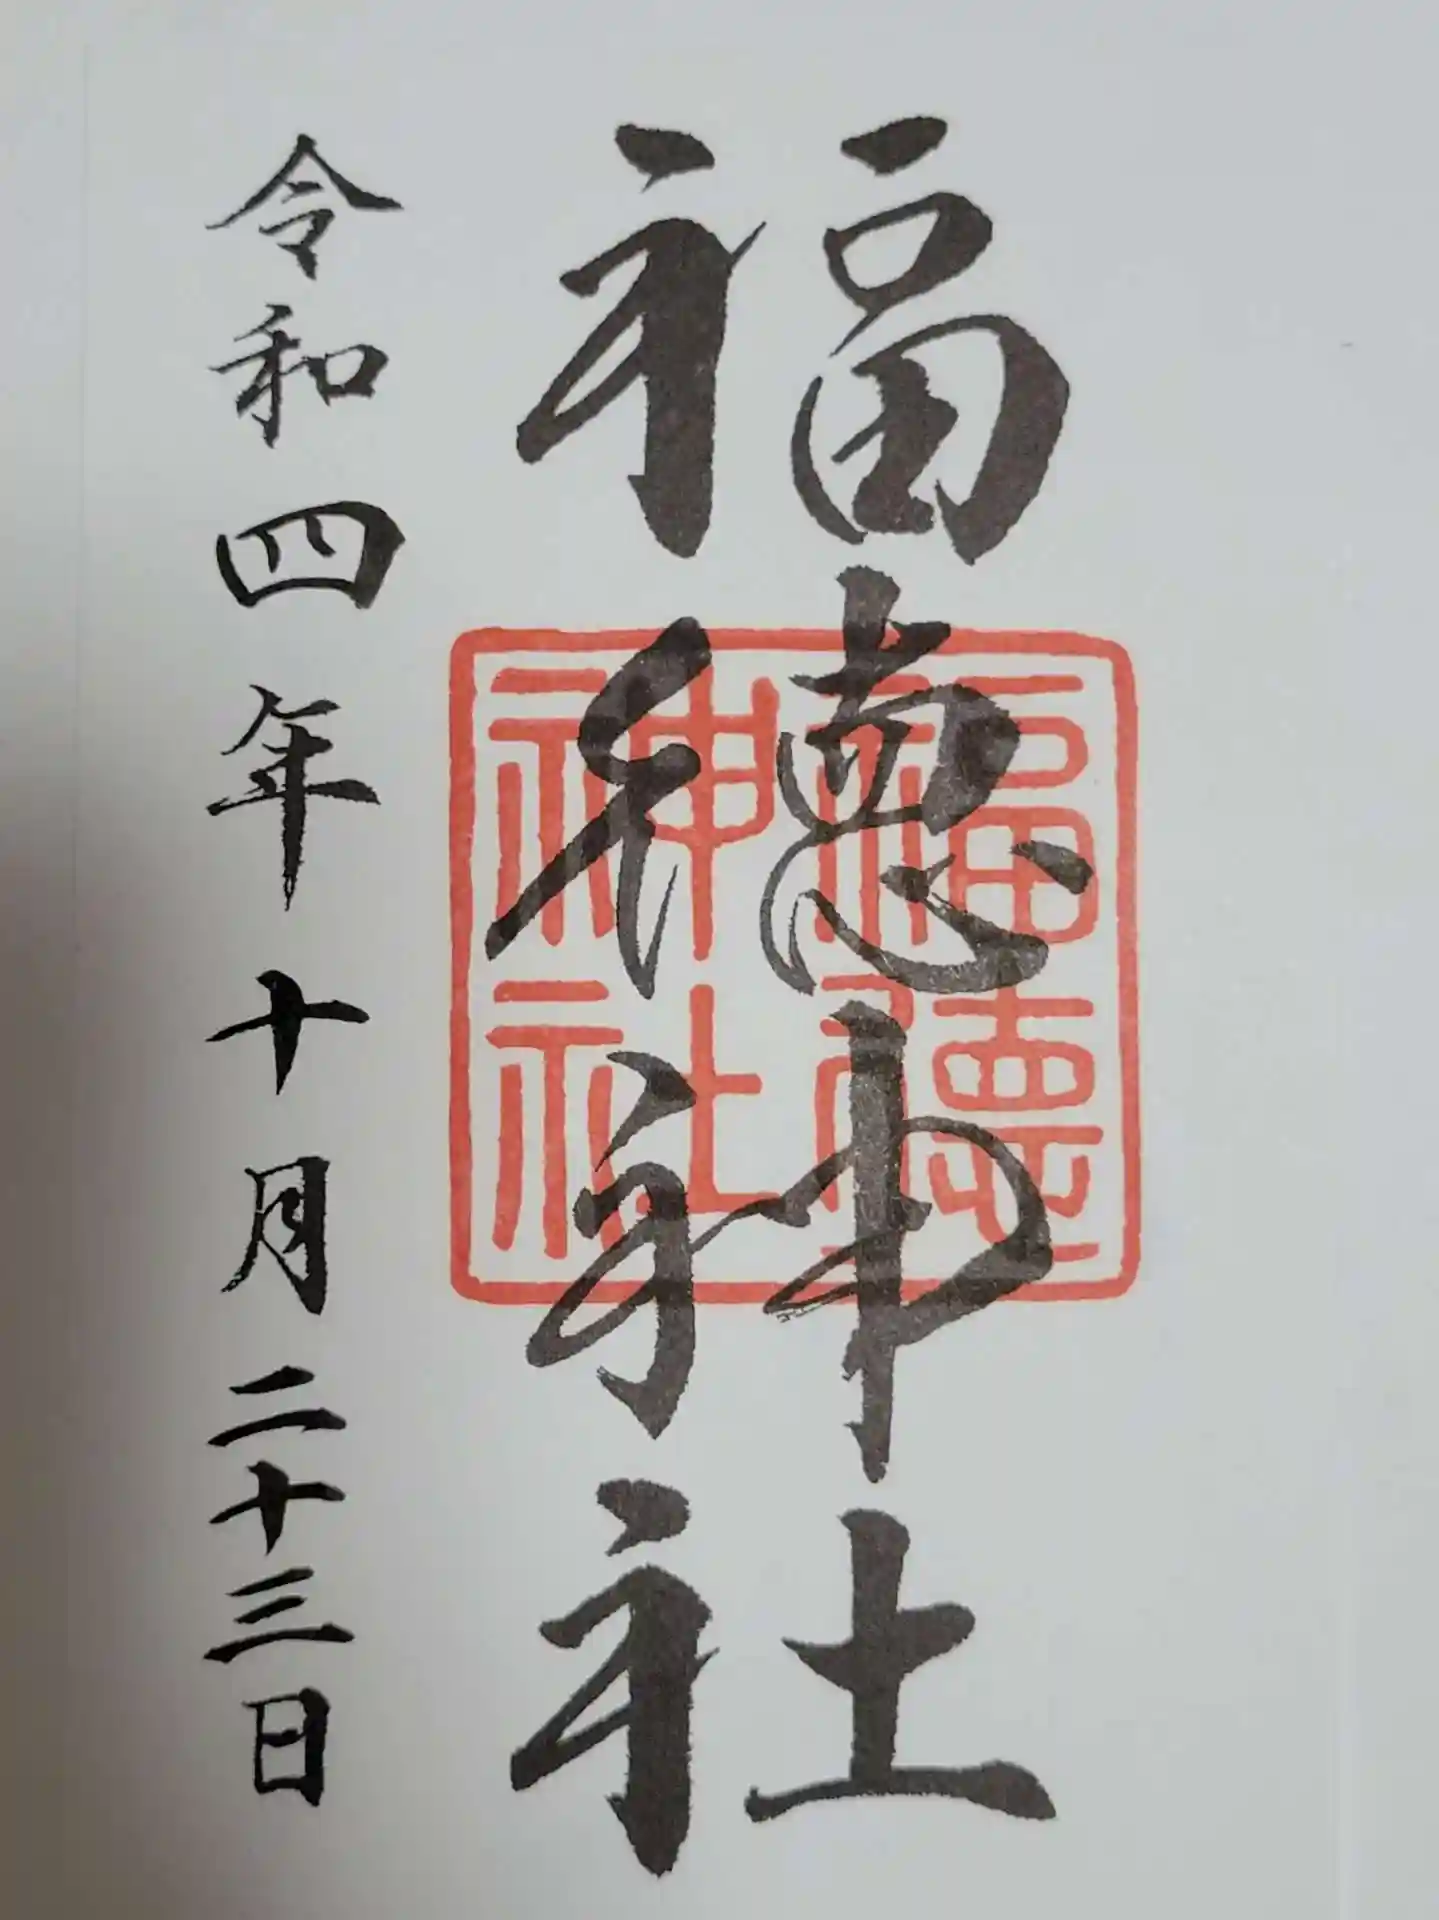 福德神社
福德
神社
令和四年十月二十三日